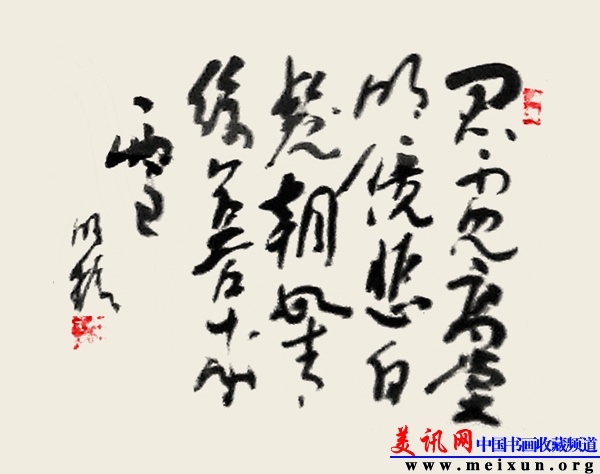 君不見高堂
明鏡悲白
髮朝如青
絲暮成
雪
明
美讯网 中国书画收藏频道
www.meixun.org